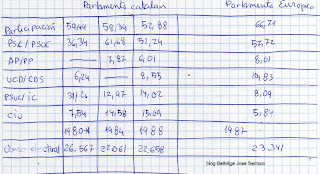 Parlamento catalán Parlamento Europeo
Participación 59,44 58,34 52,88 66,71
PSC/PSOE 36,34 61,68 51,24 52,72
AP/PP — 7,87 6,01 8,01
UCD/CDS 6,24 — 8,55 10,83
PSUC/iC 31,26 12,97 14,02 8,09
CiU 7,54 14,58 15,09 5,84
1980 1984 1988 1987
Censo electoral 26.567 22.061 22.658 23.341
blog Bellvitge Jose Santano